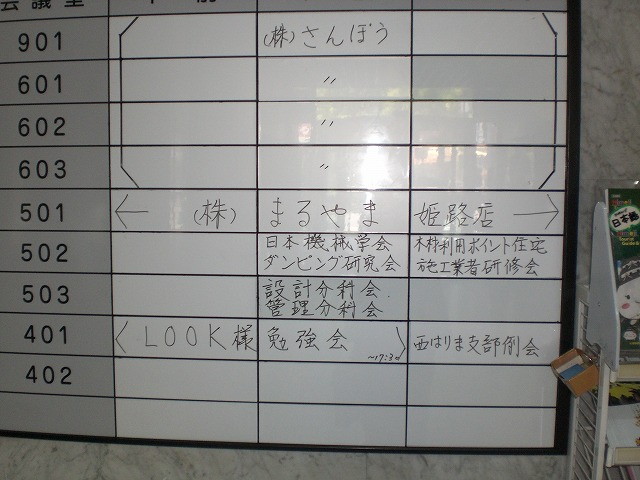 会議室 午前
901 (株)さんぼう
601 〃
602 〃
603 〃
501 ← (株) まるやま 姫路店 →
502 日本機械学会 木材利用ポイント住宅
ダンピング研究会 施工業者研修会
503 設計分科会
管理分科会
401 〈LOOK様 勉強会 〉 西はりま支部例会
~17:30
402
日本橋